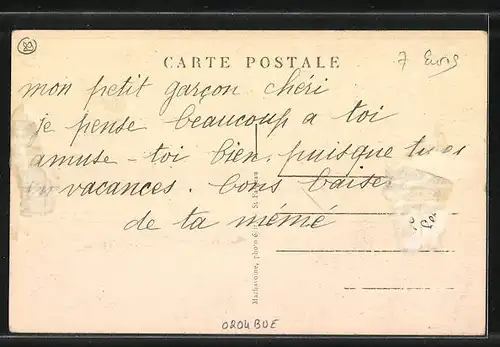 89
CARTE POSTALE
7 Euros
mon petit garçon chéri
je pense beaucoup a toi
amuse-toi bien. puisque tu es
en vacances. bons baise
de ta mémé
0204BUE